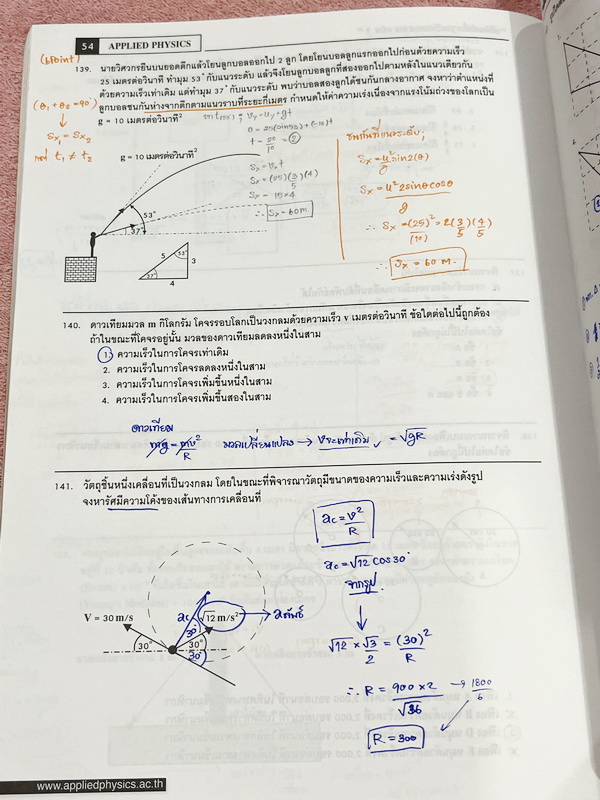 54 APPLIED PHYSICS
(6Point)
139. นายวิศวกรยืนบนยอดตึกแล้วโยนลูกบอลออกไป 2 ลูก โดยโยนบอลลูกแรกออกไปก่อนด้วยความเร็ว
25 เมตรต่อวินาที ทำมุม 53° กับแนวระดับ แล้วจึงโยนลูกบอลลูกที่สองออกไปตามหลังในแนวเดียวกัน
ด้วยความเร็วเท่าเดิม แต่ทำมุม 37° กับแนวระดับ พบว่าบอลสองลูกได้ชนกันกลางอากาศ จงหาว่าตำแหน่งที่
ลูกบอลชนกันห่างจากตึกตามแนวราบที่ระยะกี่เมตร กำหนดให้ค่าความเร่งเนื่องจากแรงโน้มถ่วงของโลกเป็น
g = 10 เมตรต่อวินาที²
(θ₁ + θ₂ = 90°)
Sx₁ = Sx₂
แต่ t₁ ≠ t₂
g = 10 เมตรต่อวินาที²
53°
37°
5
3
4
53°
37°
t = 20/10 = 2
Sx = vxt
Sx = (25)(3/5)(4)
Sx = 15×4
∴ Sx = 60 m
ชนกันที่แนวระดับ;
Sx = u² sin2(θ)/g
Sx = u² 2sinθcosθ/g
∴ Sx = (25)²/(10) × 2(3/5)(4/5)
∴ Sx = 60 m.
140. ดาวเทียมมวล m กิโลกรัม โคจรรอบโลกเป็นวงกลมด้วยความเร็ว v เมตรต่อวินาที ข้อใดต่อไปนี้ถูกต้อง
ถ้าในขณะที่โคจรอยู่นั้น มวลของดาวเทียมลดลงหนึ่งในสาม
1. ความเร็วในการโคจรเท่าเดิม
2. ความเร็วในการโคจรลดลงหนึ่งในสาม
3. ความเร็วในการโคจรเพิ่มขึ้นหนึ่งในสาม
4. ความเร็วในการโคจรเพิ่มขึ้นสองในสาม
ดาวเทียม
mg = mv²/R มวลเปลี่ยนแปลง → vจะเท่าเดิม = √gR
141. วัตถุชิ้นหนึ่งเคลื่อนที่เป็นวงกลม โดยในขณะที่พิจารณาวัตถุมีขนาดของความเร็วและความเร่งดังรูป
จงหารัศมีความโค้งของเส้นทางการเคลื่อนที่
ac = v²/R
ac = √12 cos30°
จากรูป
√12 × √3/2 = (30)²/R
∴ R = 900 × 2/√36 → 1800/6
R = 300
V = 30 m/s
ac
√12 m/s²
aลัพธ์
30°
30°
30°
30°
www.appliedphysics.ac.th